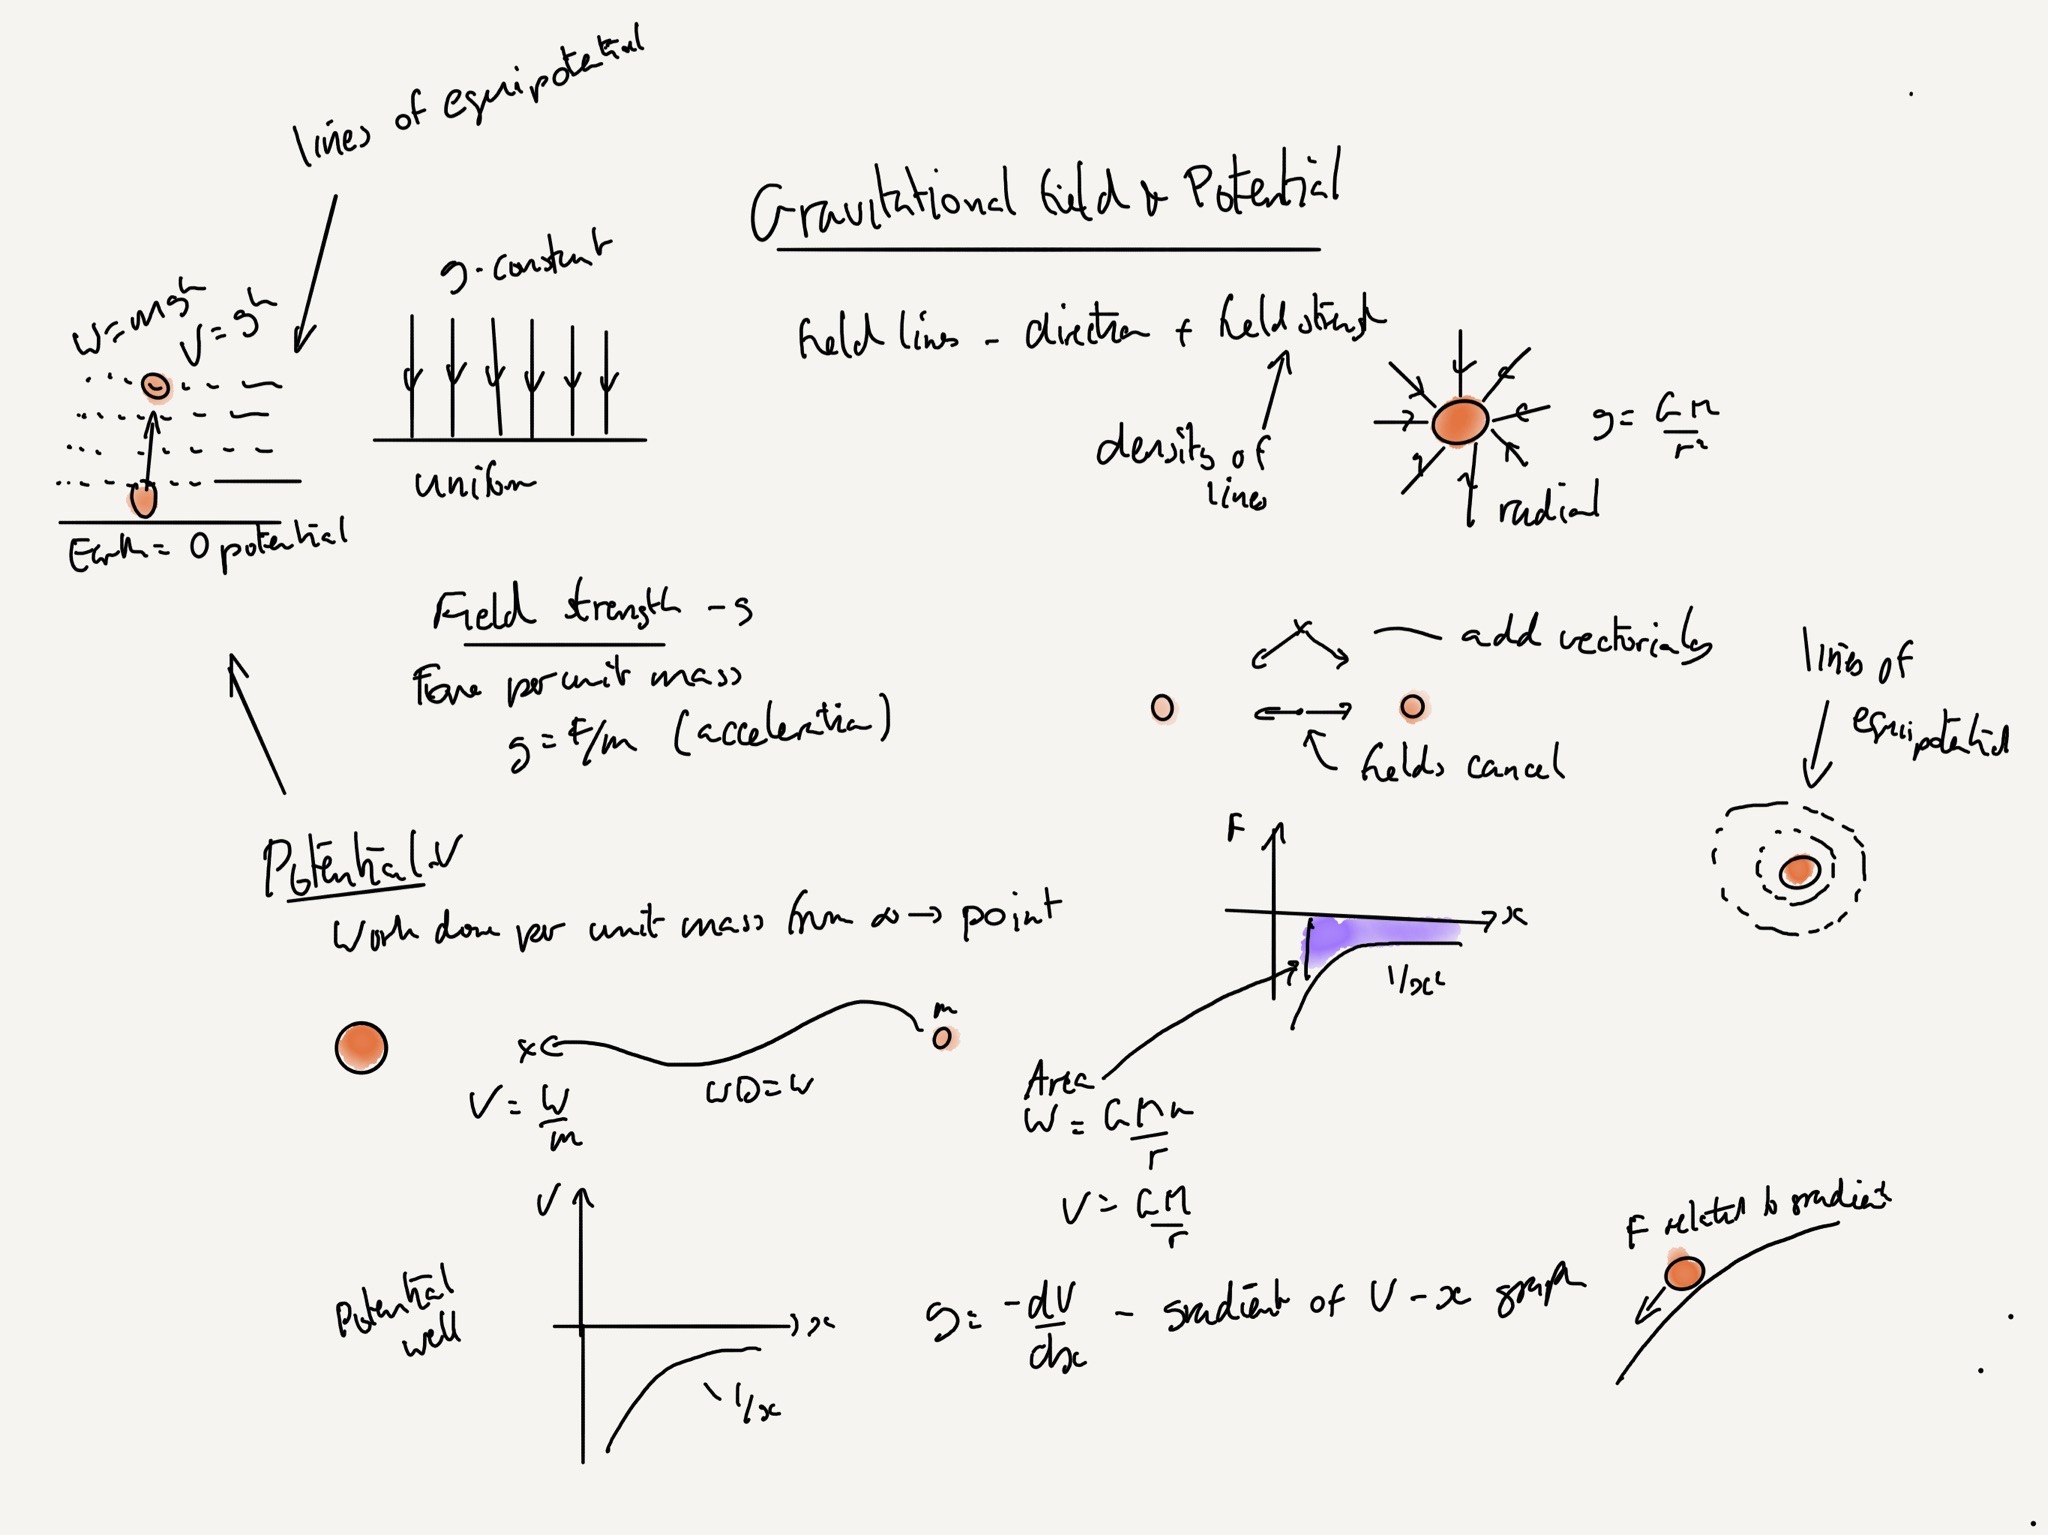 lines of equipotential
Gravitational field & Potential
g - constant
W = mgh
V = gh
field lines - direction + field strength
density of
lines
g = GM/r²
radial
uniform
Earth = 0 potential
Field strength - g
Force per unit mass
g = F/m (acceleration)
add vectorially
fields cancel
lines of
equipotential
Potential - V
Work done per unit mass from ∞ → point
F
x
1/x²
m
x
WD = W
V = W/m
Area
W = GMm/r
V = GM/r
V
x
Potential
well
1/x
g = -dV/dx - gradient of V - x graph
F related to gradient